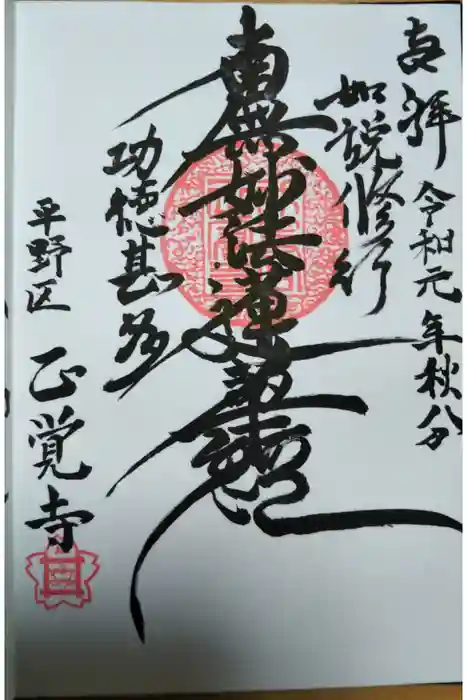 奉拝 令和元年秋分
如説修行
南無妙法蓮華経
功徳甚多
平野区 正覚寺